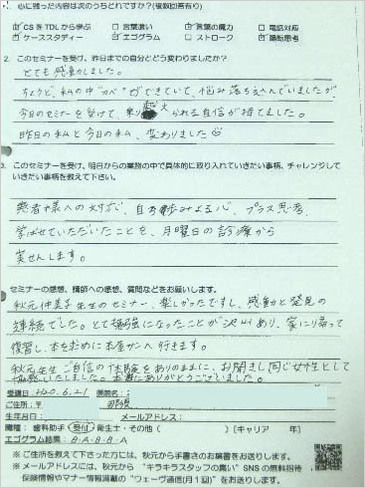 心に残った内容は次のうちどれですか？(複数回答有り)
☑ CSをTDLから学ぶ □ 言葉遣い ☑ 言葉の魔力 □ 電話対応
☑ ケーススタディー □ エゴグラム □ ストローク ☑ 陽転思考
2. このセミナーを受け、昨日までの自分とどう変わりましたか？
とても感動しました。
ちょうど、私の中"カベ"ができていて、悩み落ち込んでいましたが
今日のセミナーを受けて、乗り越えられる自信が持てました。
昨日の私と今日の私、変わりました
3. このセミナーを受け、明日からの業務の中で具体的に取り入れていきたい事柄、チャレンジして
いきたい事柄を教えて下さい。
患者様への対応、自ら歩みよる心、プラス思考、
学ばせていただいたことを、月曜日の診療から
実せんします。
セミナーの感想、講師への感想、質問などをお願いします。
秋元仲美子先生のセミナー、楽しかったですし、感動と発見の
連続でした。とても勉強になったことが沢山あり、家に帰って
復習し、本を求めに本屋さんへ行きます。
秋元先生ご自信の体験をありのままに、お聞きし同じ女性として
ありがとうございました。
受講日 2020.6.21
ご住所：〒
生年月日： メールアドレス：
職種： 歯科助手 受付 衛生士・その他( )(キャリア 年)
エゴグラム結果： B-A-B-B-A
※ ご住所を教えて下さった方には、秋元から手書きのお葉書をお送りします。
※メールアドレスには、秋元から "キラキラスタッフの集い" SNSの無料招待
保険情報やマナー情報満載の「ウェーヴ通信(月1回)」をお送りします。